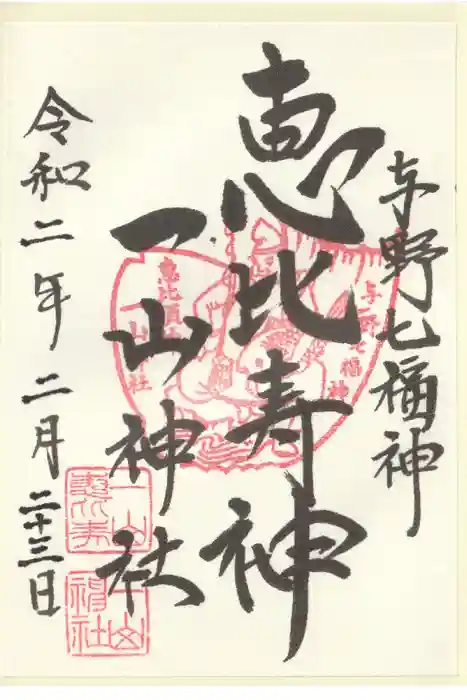 与野七福神
恵比寿神
一山神社
令和二年二月二十三日
与野七福神
恵比寿神
一山神社